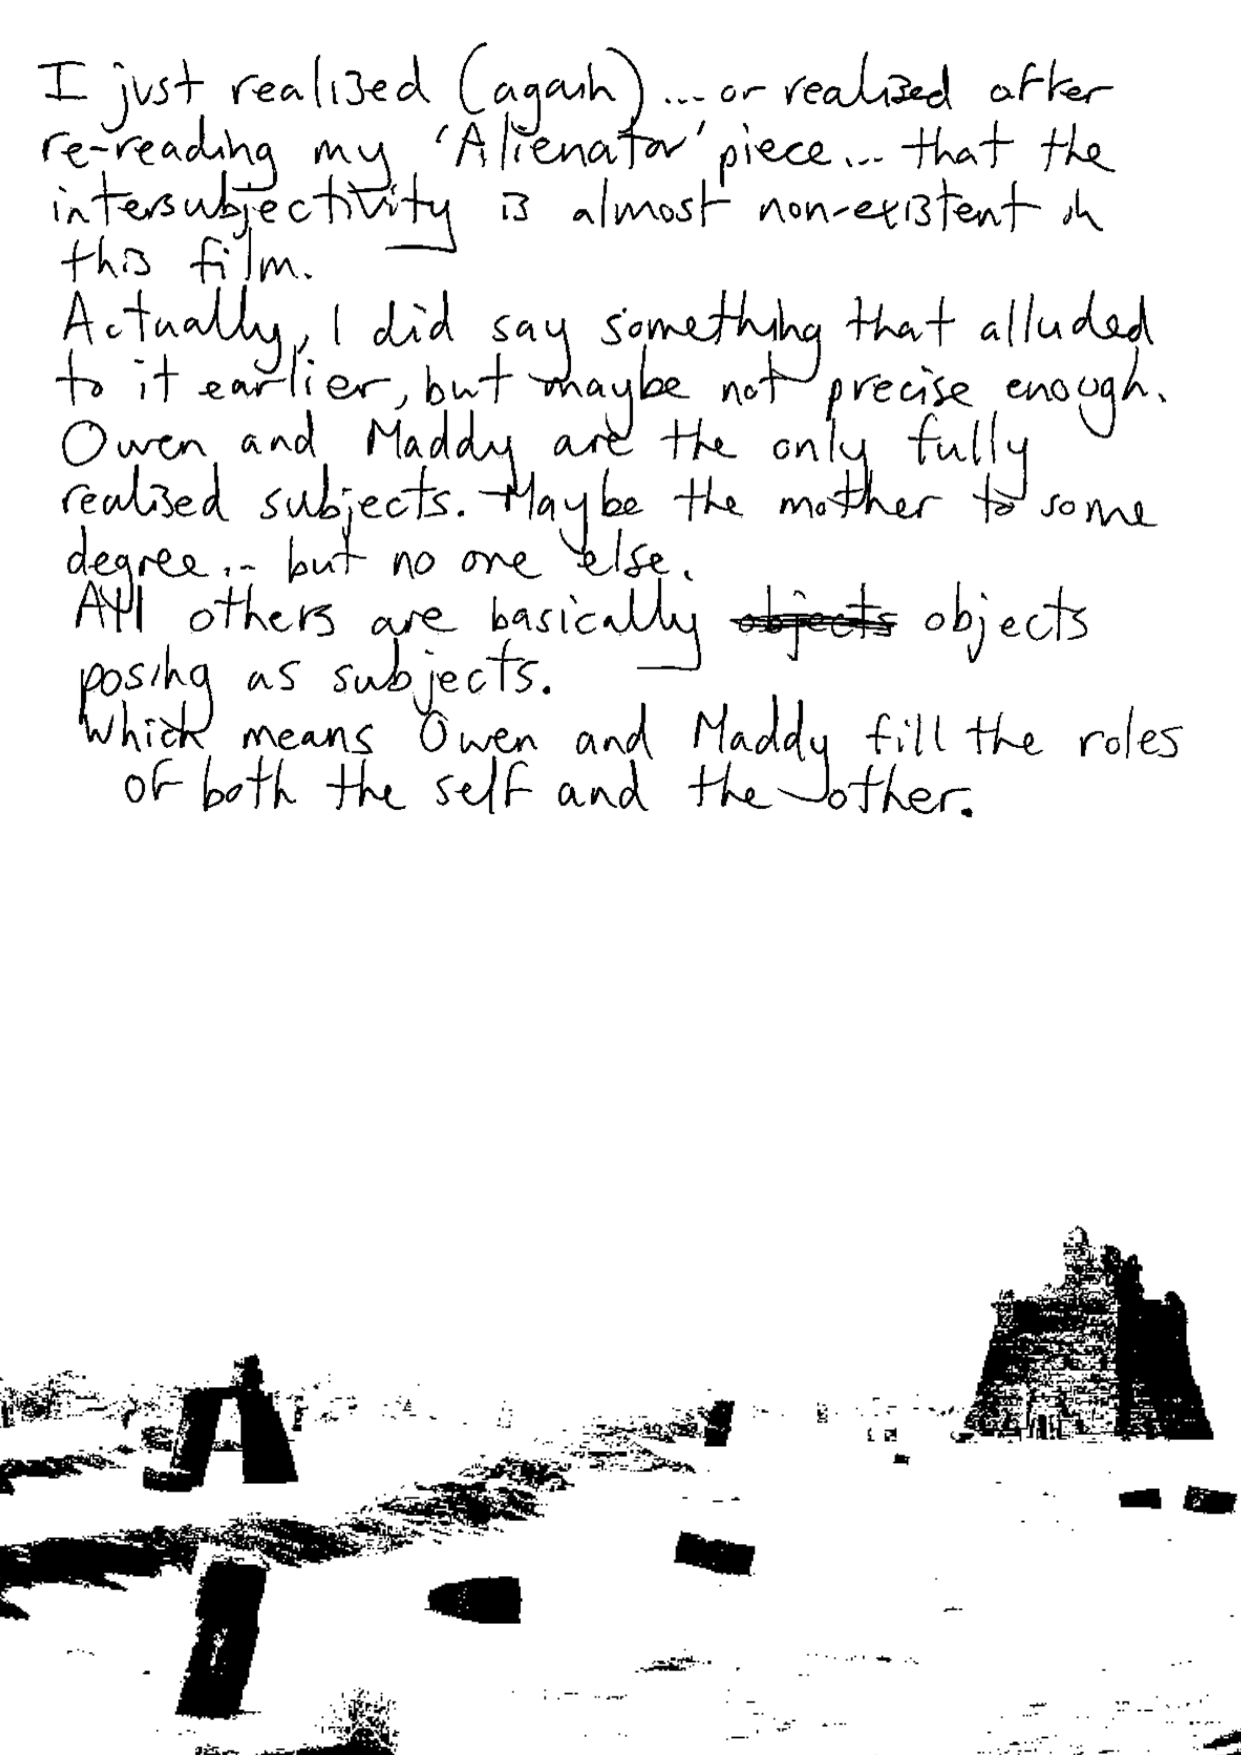 I just realized (again)... or realized after
re-reading my 'Alienator' piece... that the
intersubjectivity is almost non-existent in
this film.
Actually, I did say something that alluded
to it earlier, but maybe not precise enough.
Owen and Maddy are the only fully
realized subjects. Maybe the mother to some
degree... but no one else.
All others are basically objects objects
posing as subjects.
Which means Owen and Maddy fill the roles
of both the self and the other.